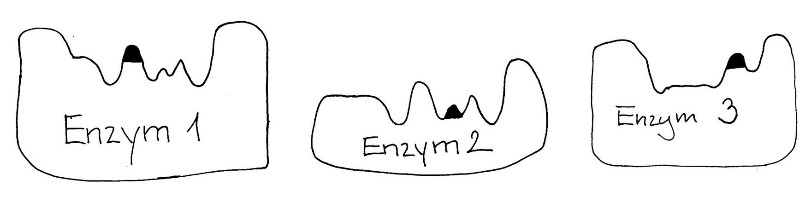 Enzym 1
Enzym 2
Enzym 3